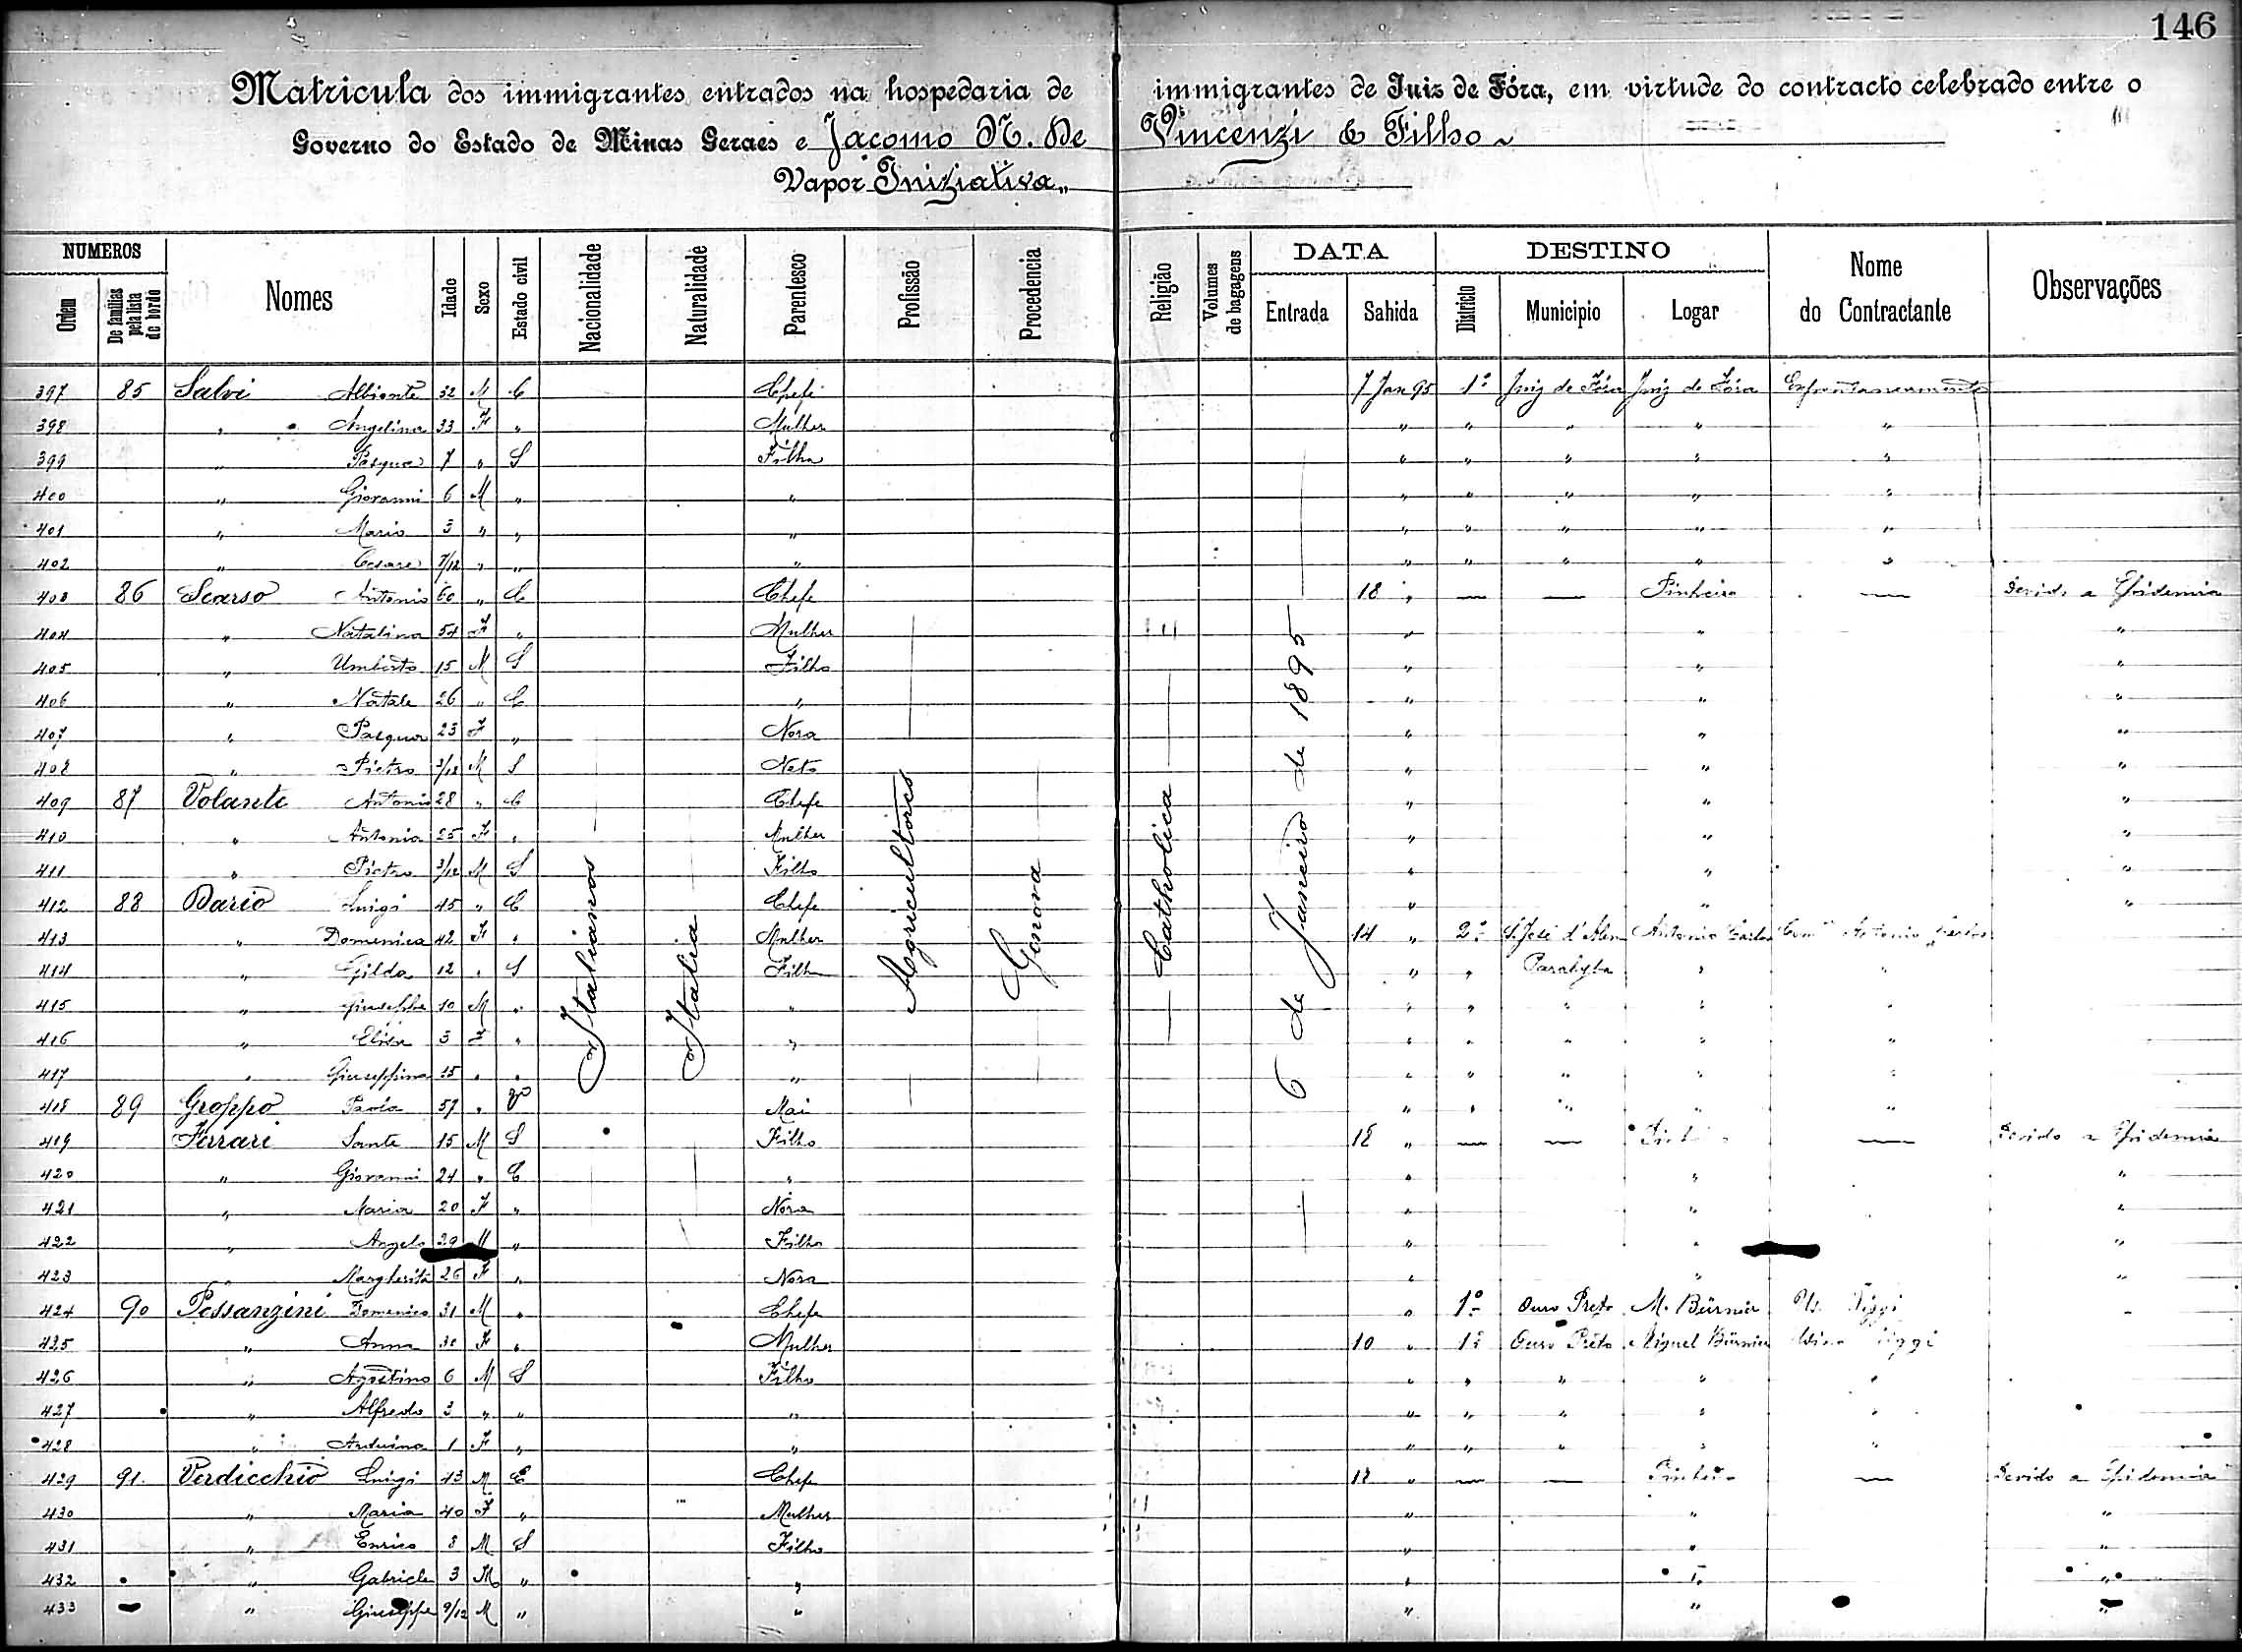 146
Matricula dos immigrantes entrados na hospedaria de immigrantes de Juiz de Fóra, em virtude do contracto celebrado entre o
Governo do Estado de Minas Geraes e Jacomo N. de Vincenzi & Filho
Vapor Iniziativa
NUMEROS DATA DESTINO
Ordem De familias pela lista de bordo Nomes Idade Sexo Estado civil Nacionalidade Naturalidade Parentesco Profissão Procedencia Religião Volumes de bagagens Entrada Sahida Districto Municipio Logar Nome do Contractante Observações
Italianos Italia Agricultores Genova Catholica 6 de Janeiro de 1895
397 85 Salvi 32 M C Chefe 7 Jan 95 1º Juiz de Fóra Juiz de Fóra
398 " Angelina 33 F " Mulher " " " " "
399 " Pasqua 7 " S Filha " " " " "
400 " Giovanni 6 M " " " " " " "
401 " Mario 3 " " " " " " " "
402 " Cesare 7/12 " " " " " " " "
403 86 Scarso Antonio 60 " C Chefe 18 " — — Pinheiro — Devido a Epidemia
404 " Natalina 54 F " Mulher " " "
405 " Umberto 15 M S Filho " " "
406 " Natale 26 " C " " " "
407 " Pasqua 23 F " Nora " " "
408 " Pietro 3/12 M S Neto " " "
409 87 Volante Antonio 28 " C Chefe " " "
410 " Antonia 25 F " Mulher " " "
411 " Pietro 3/12 M S Filho " " "
412 88 Dario Luigi 45 " C Chefe " " "
413 " Domenica 42 F " Mulher 14 " 2º S. José d'Alem Antonio Carlos Antonio Carlos
414 " Gilda 12 " S Filha " " Parahyba " "
415 " Giuseppe 10 M " " " " " " "
416 " 3 F " " " " " " "
417 " Giuseppina 15 " " " " " " " "
418 89 Groppo Paola 57 " V Mai " " " " "
419 Ferrari Sante 15 M S Filho 18 " — — — Devido a Epidemia
420 " Giovanni 24 " C " " " "
421 " Maria 20 F " Nora " " "
422 " Angelo 29 M " Filho " " "
423 " Margherita 26 F " Nora " " "
424 90 Pessanzini Domenico 31 M " Chefe " 1º Ouro Preto M. Bürnier
425 " Anna 30 F " Mulher 10 " 1º Ouro Preto Miguel Bürnier
426 " Agostino 6 M S Filho " " " " "
427 " Alfredo 3 " " " " " " " "
428 " Arduina 1 F " " " " " " "
429 91 Verdicchio Luigi 43 M C Chefe 18 " — — Pinheiro — Devido a Epidemia
430 " Maria 40 F " Mulher " " "
431 " Enrico 8 M S Filho " " "
432 " Gabriele 3 M " " " " "
433 " Giuseppe 9/12 M " " " " "